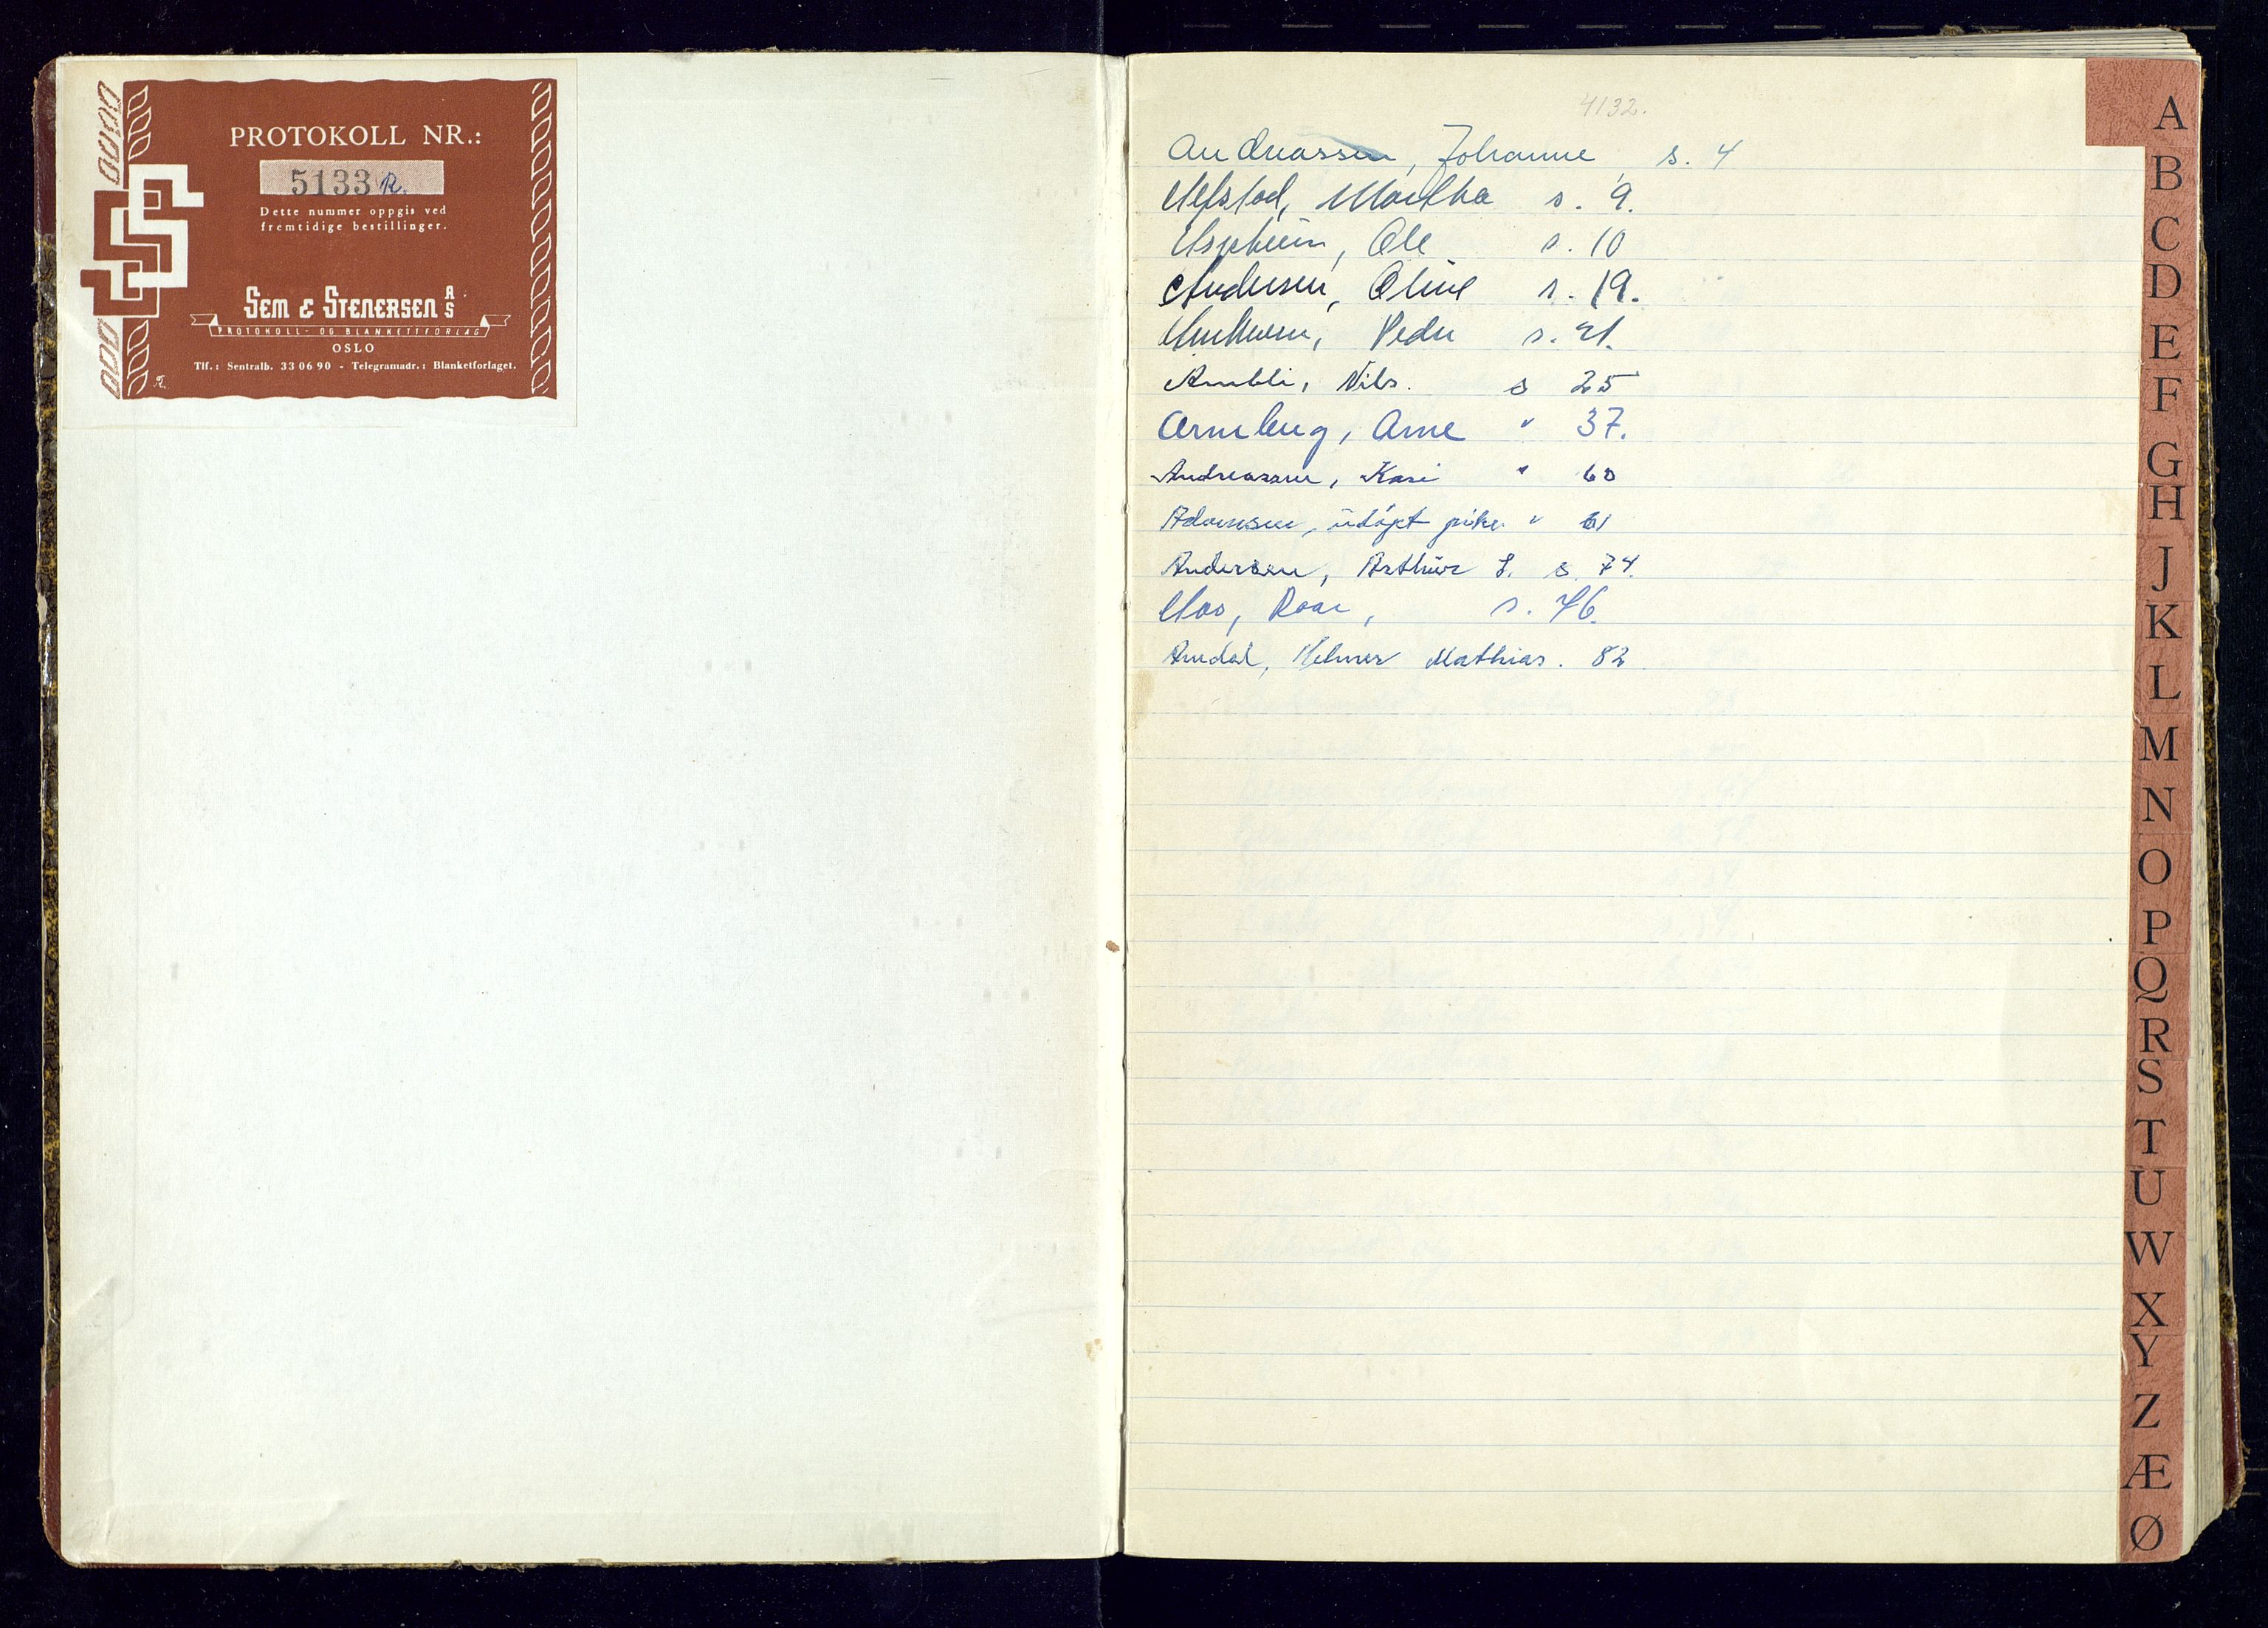 PROTOKOLL NR.:
5133 R.
Dette nummer oppgis ved
fremtidige bestillinger.
SEM & STENERSEN A/S
PROTOKOLL- OG BLANKETTFORLAG
OSLO
Tlf.: Sentralb. 33 06 90 - Telegramadr.: Blanketforlaget.
4132.
Andreassen, Johanne s. 4
Alfstad, Martha s. 9.
Aspheim, Ole s. 10
Andersen, Oline s. 19.
Peder s. 21.
Ambli, Nils. s 25
Arneberg, Arne " 37.
Andreassen, Kari " 60
Adamsen, udöpt pike " 61
Andersen, Arthur J. s. 74.
Aas, Roar, s. 76.
Amdal, Helmer Mathias. 82
A
B
C
D
E
F
G
H
J
K
L
M
N
O
P
Q
R
S
T
U
W
X
Y
Z
Æ
Ø